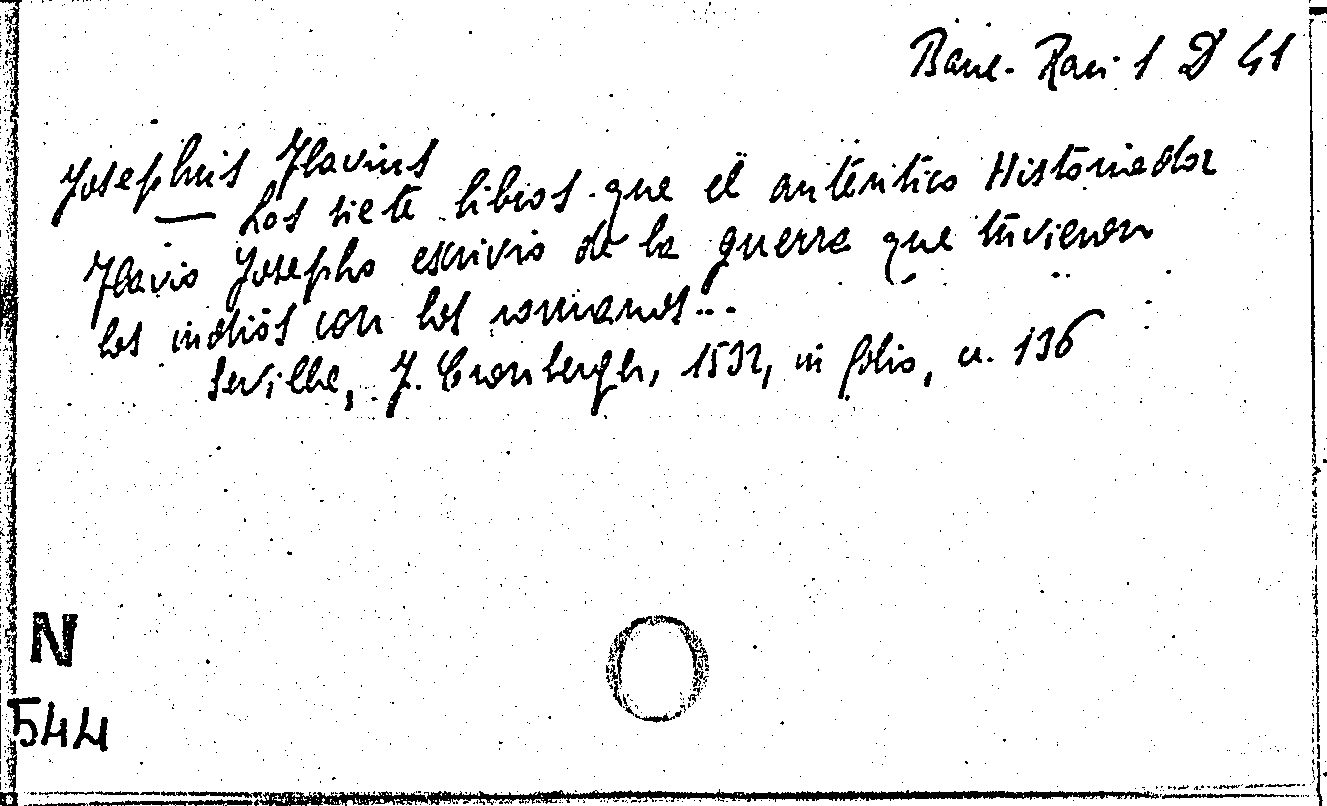 Banc. Rari 1 D 41
Josephus Flavius
— Los siete libros que el auténtico Historiador
Flavio Josepho escrivio de la guerra que tuvieron
los indios con los romanos...
Sevilla, J. Cronbergh, 1532, in folio, cc. 136
N
544